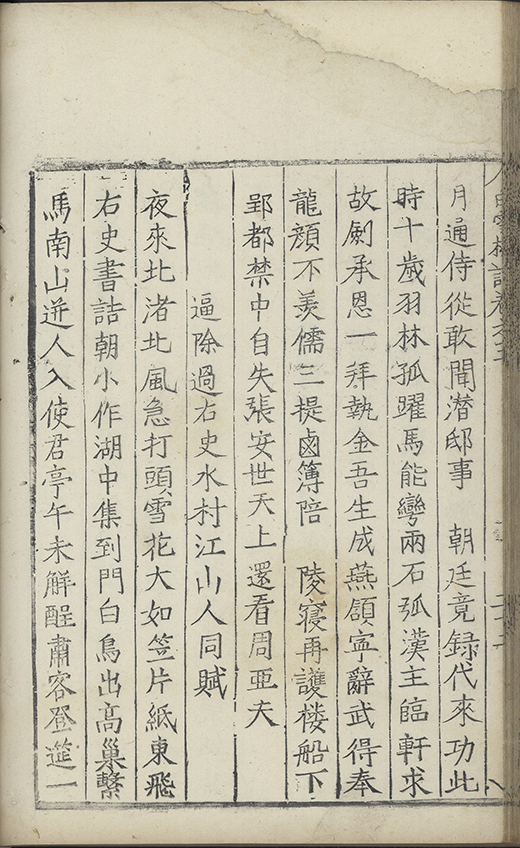 月通侍從敢聞潛邸事　朝廷竟録代來功此
時十歲羽林孤躍馬能彎兩石弧漢主臨軒求
故劍承恩一拜執金吾生成燕頷寧辭武得奉
龍顔不羨儒三提鹵簿陪　陵寢再護樓船下
郢都禁中自失張安世天上還看周亞夫
逼除過右史水村江山人同賦
夜來北渚北風急打頭雪花大如笠片紙東飛
右史書詰朝小作湖中集到門白鳥出高巢繫
馬南山逆人入使君亭午未解酲肅客登筵一